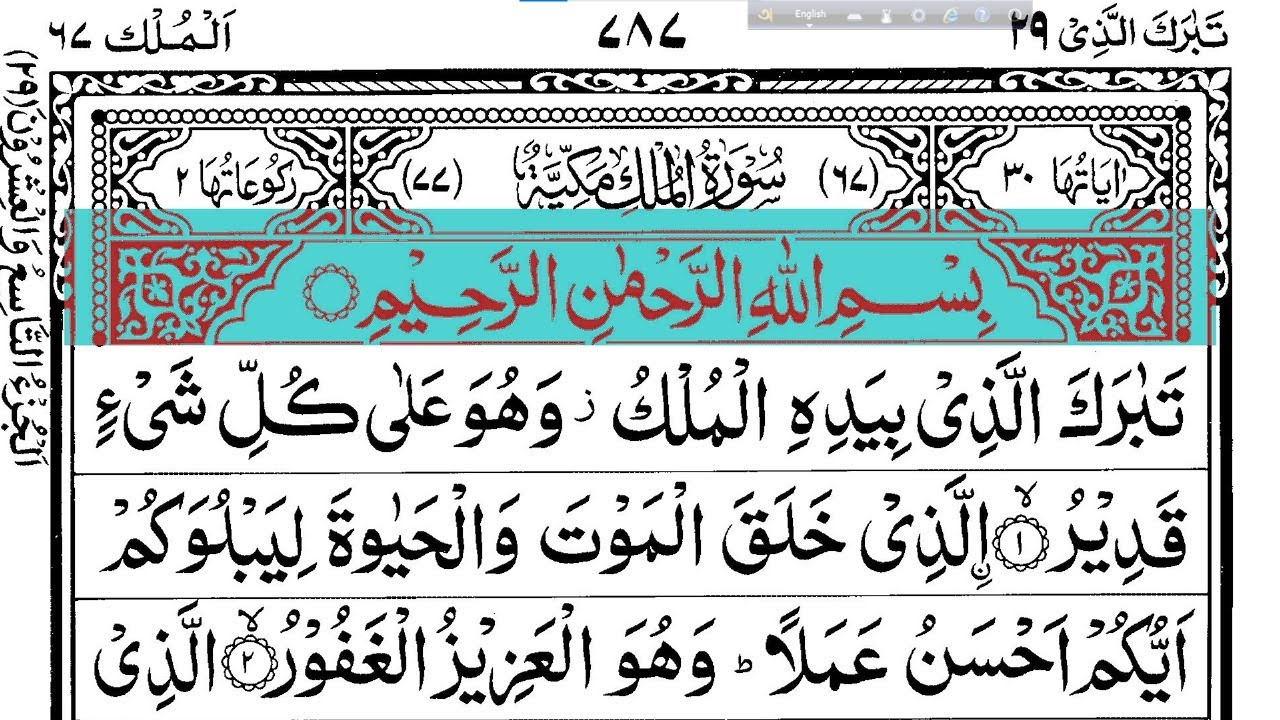 English
تَبٰرَكَ الَّذِیْ ٢٩ ٧٨٧ اَلْمُلْك ٦٧
اٰیَاتُهَا ٣٠ (٦٧) سُوْرَةُ الْمُلْكِ مَكِّیَّةٌ (٧٧) رُكُوْعَاتُهَا ٢
بِسْمِ اللّٰهِ الرَّحْمٰنِ الرَّحِیْمِ
تَبٰرَكَ الَّذِیْ بِیَدِهِ الْمُلْكُ ؗ وَهُوَ عَلٰی كُلِّ شَیْءٍ
قَدِیْرُ ۙ﴿١﴾ اِۨلَّذِیْ خَلَقَ الْمَوْتَ وَالْحَیٰوةَ لِیَبْلُوَكُمْ
اَیُّكُمْ اَحْسَنُ عَمَلًا ؕ وَهُوَ الْعَزِیْزُ الْغَفُوْرُ ۙ﴿٢﴾ الَّذِیْ
اَلْجُزْءُ التَّاسِعُ وَالْعِشْرُوْنَ (٢٩)